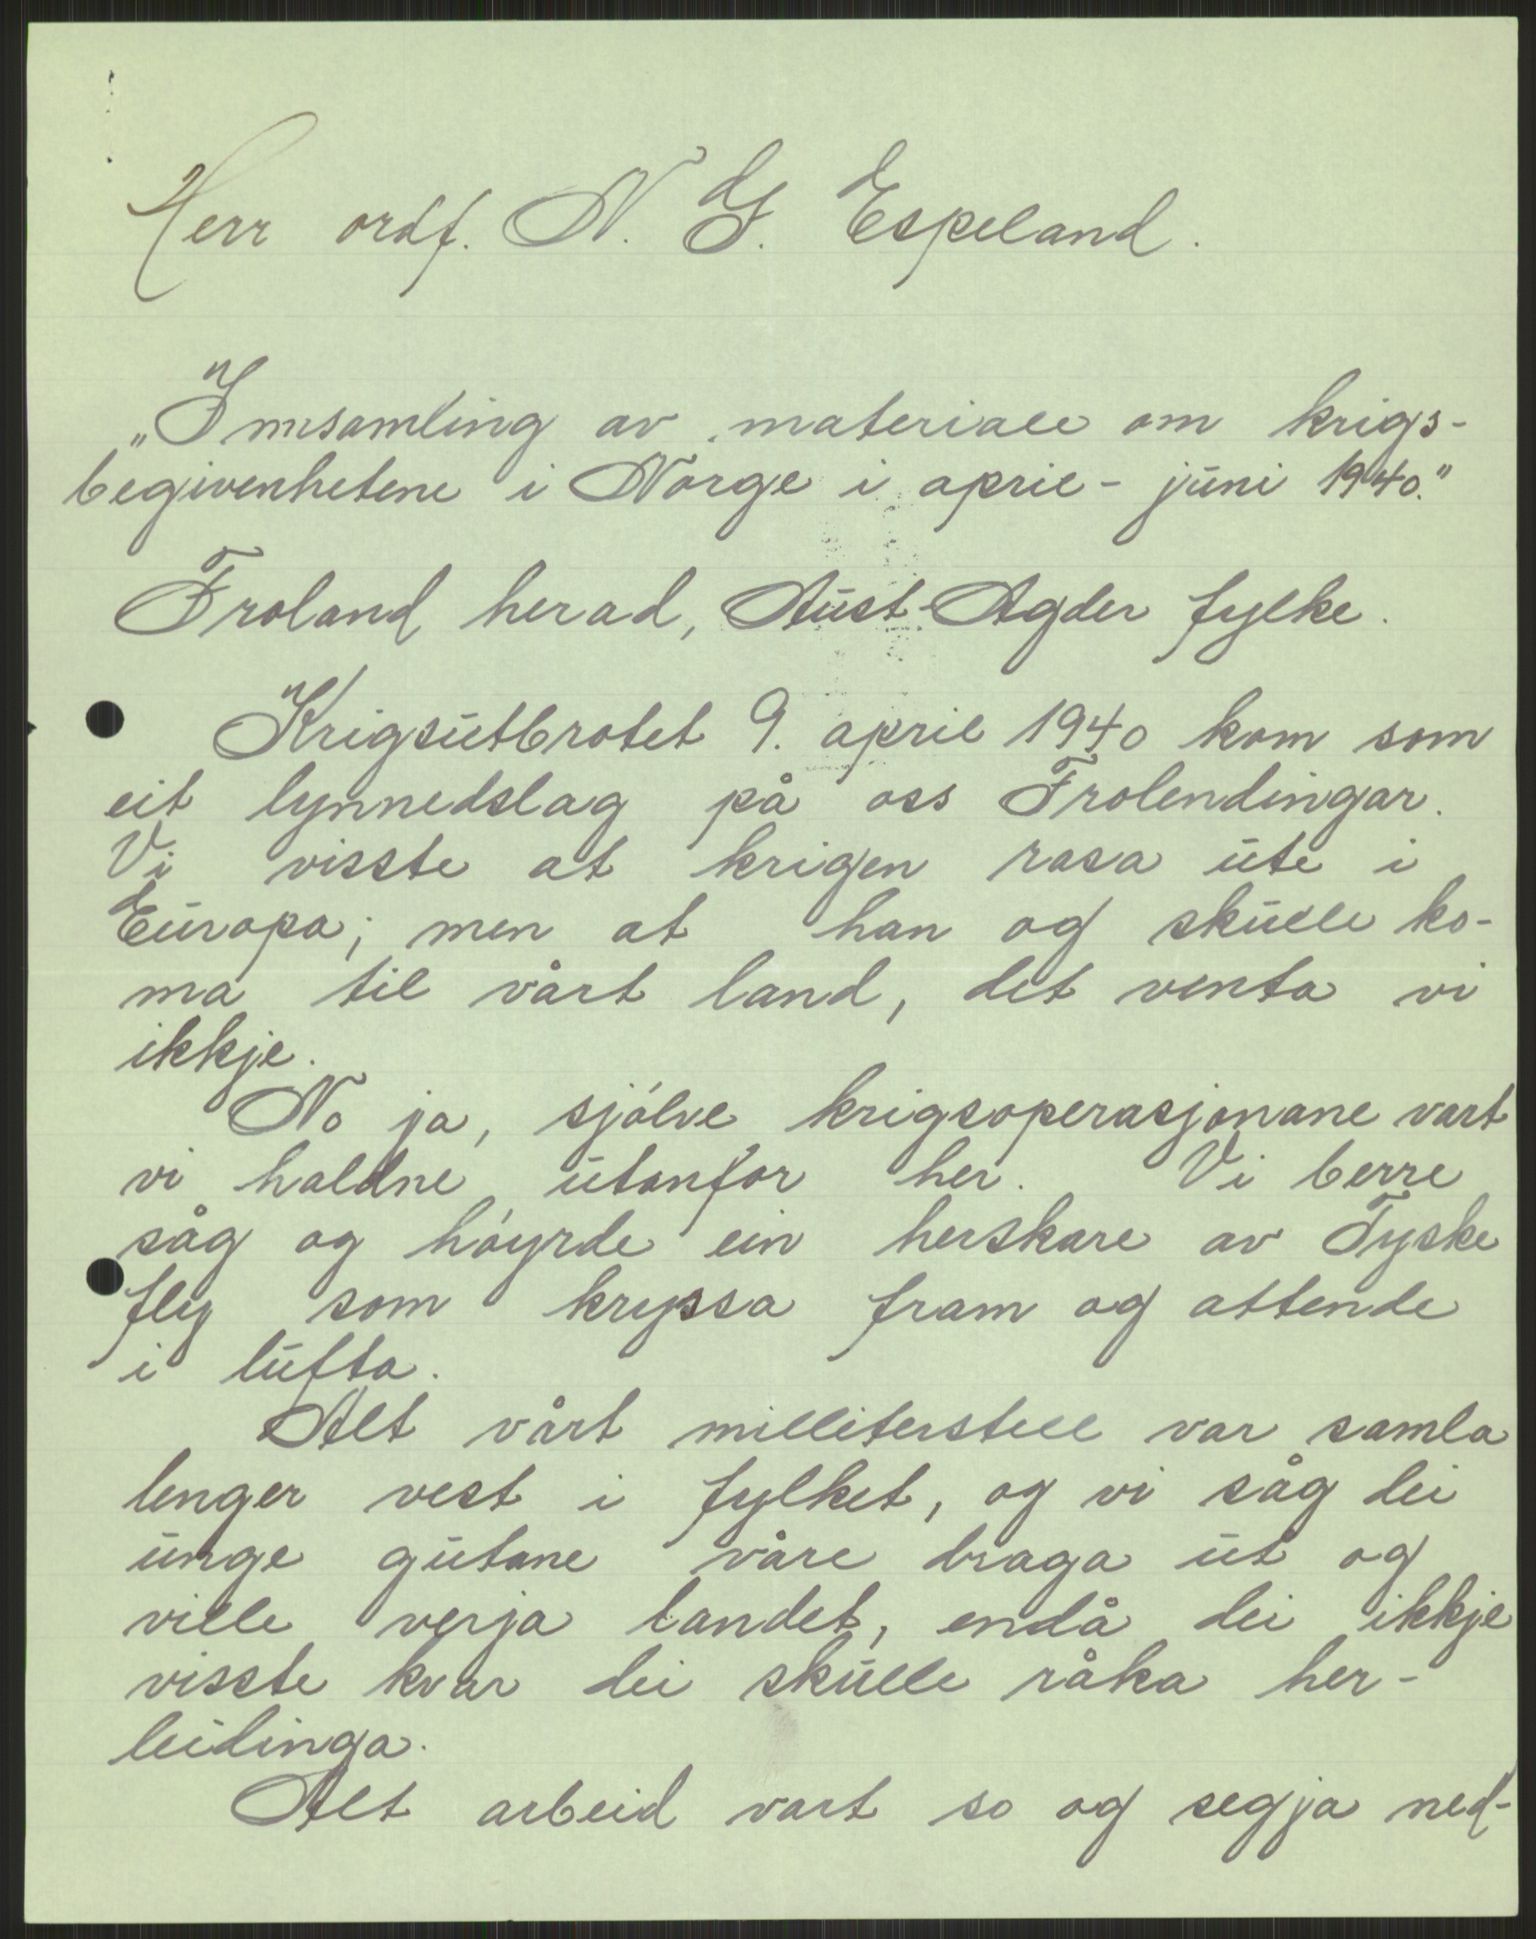 Herr ordf. N. G. Espeland.
„Innsamling av materiale om krigs-
begivenhetene i Norge i april - juni 1940."
Froland herad, Aust-Agder fylke.
Krigsutbrotet 9. april 1940 kom som
eit lynnedslag på oss Frolendingar.
Vi visste at krigen rasa ute i
Europa; men at han og skulle ko-
ma til vårt land, det venta vi
ikkje.
No ja, sjølve krigsoperasjonane vart
vi haldne utanfor her. Vi berre
såg og høyrde ein herskare av Tyske
fly som kryssa fram og attende
i lufta.
Alt vårt milliterstell var samla
lenger vest i fylket, og vi såg dei
unge gutane våre draga ut og
ville verja landet, endå dei ikkje
visste kvar dei skulle råka her-
leidinga.
Alt arbeid vart so og segja ned-